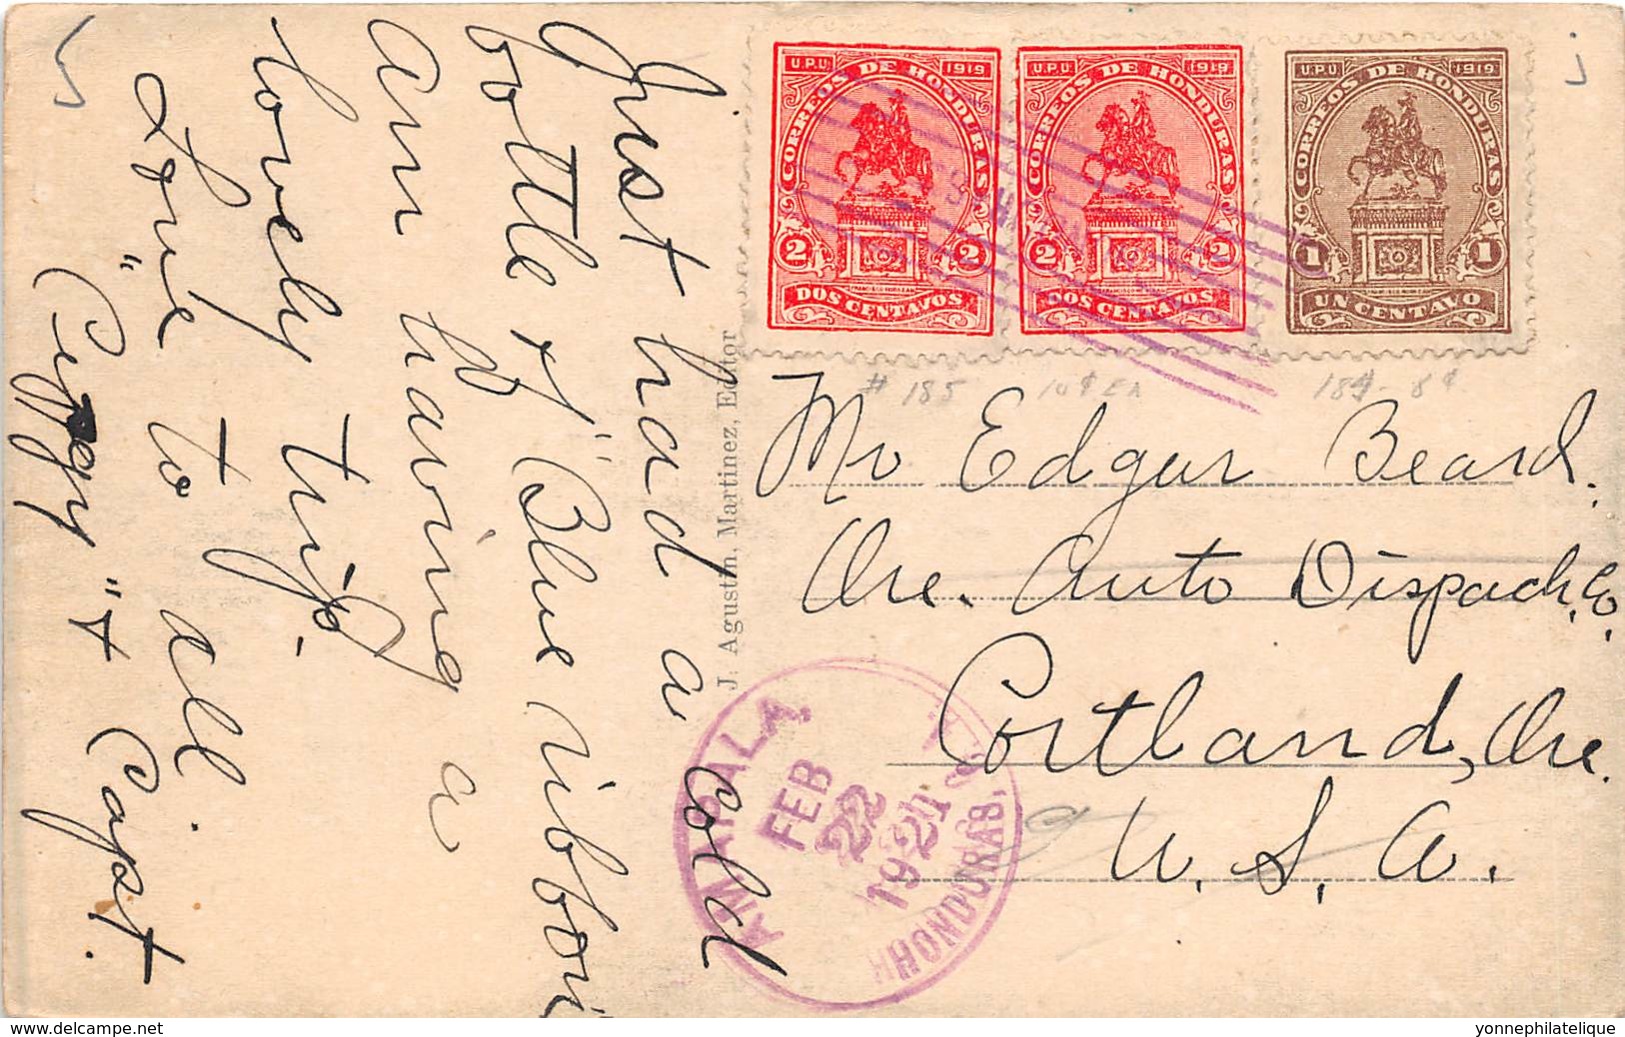 Just had a cold
bottle of "Blue ribbon
am having a
lovely trip.
Love to all
"Peggy" + Capt.
J. Agustin, Martinez, Editor
U.P.U 1919
CORREOS DE HONDURAS
2 2
DOS CENTAVOS
U.P.U 1919
CORREOS DE HONDURAS
2 2
DOS CENTAVOS
U.P.U 1919
CORREOS DE HONDURAS
1 1
UN CENTAVO
# 185 10¢ EA 184 - 8¢
Mr Edgar Beard.
Ore. Auto Dispach. Co.
Portland, Ore.
U. S. A.
AMAPALA,
FEB
22
1921
HONDURAS,
www.delcampe.net
yonnephilatelique